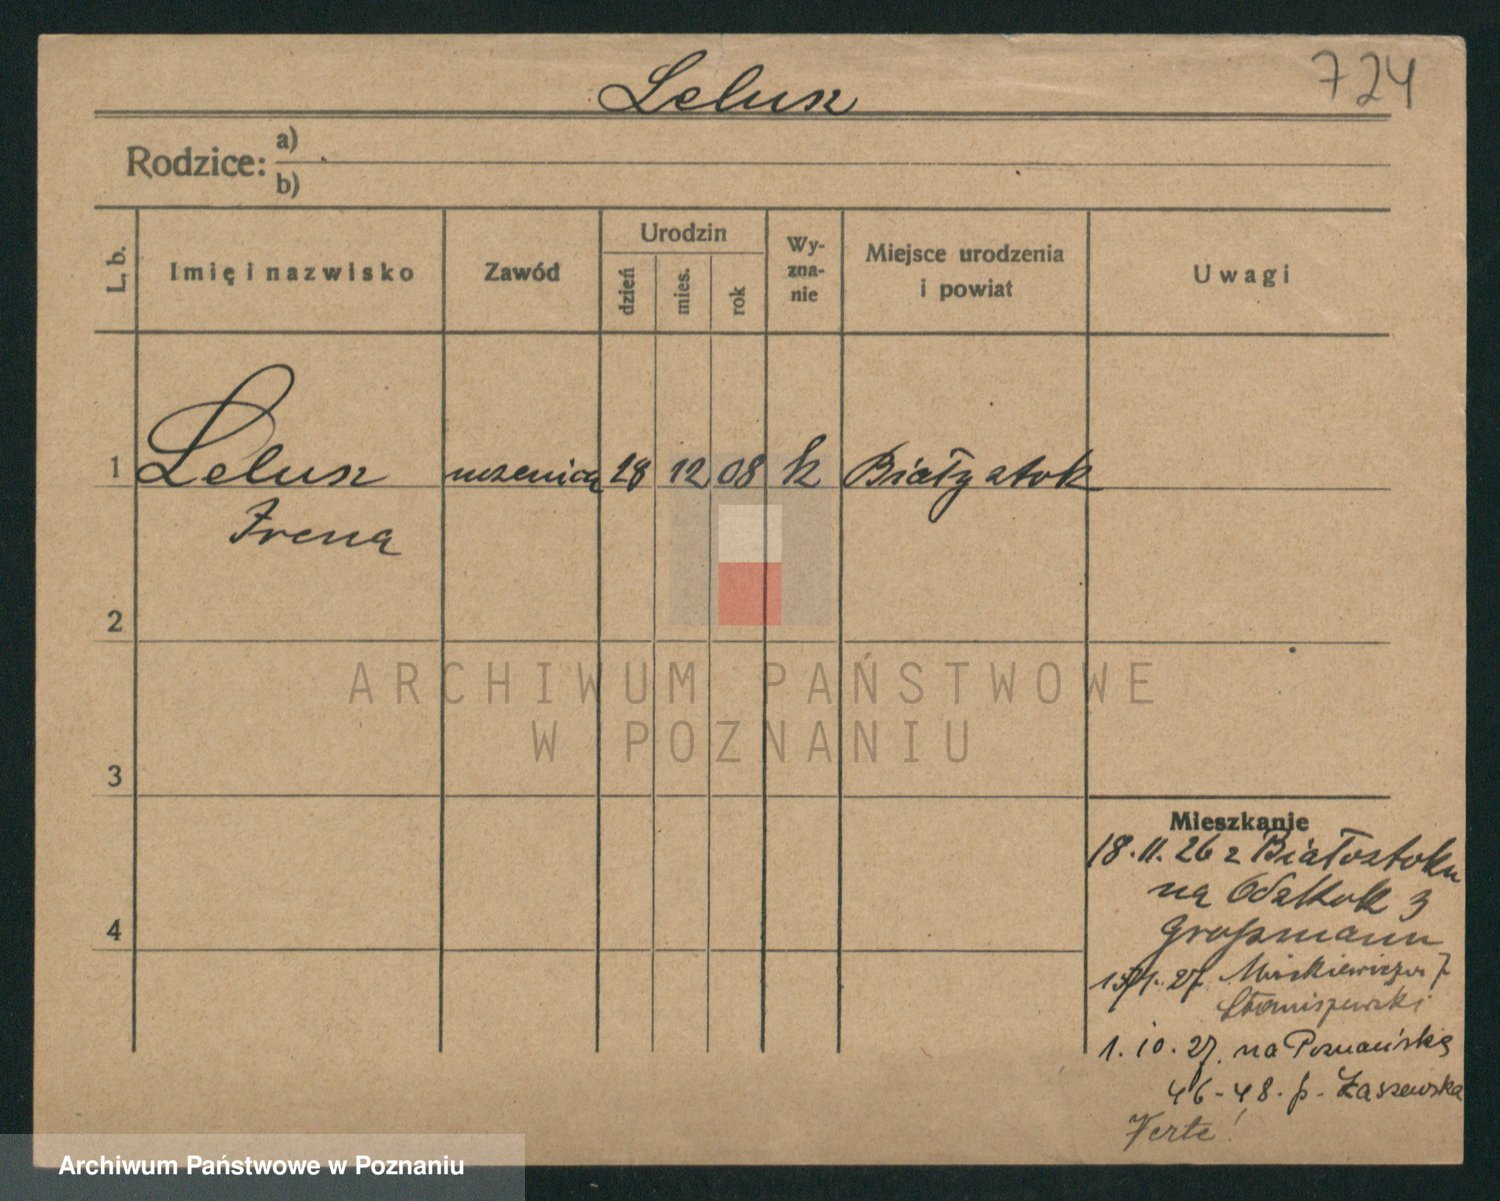 Lelusz
724
Rodzice: a)
b)
L. b.
Imię i nazwisko
Zawód
Urodzin
dzień
mies.
rok
Wy-
zna-
nie
Miejsce urodzenia
i powiat
Uwagi
1 Lelusz uczenica 28 12 08 k Białystok
Irena
2
3
4
ARCHIWUM PAŃSTWOWE
W POZNANIU
Mieszkanie
18.11.26 z Białostoku
na 3
Großmann
1.27 Mickiewicza 7
Staniszewski
1.10.27. na Poznańską
46-48. p. Łaszewska
Verte!
Archiwum Państwowe w Poznaniu